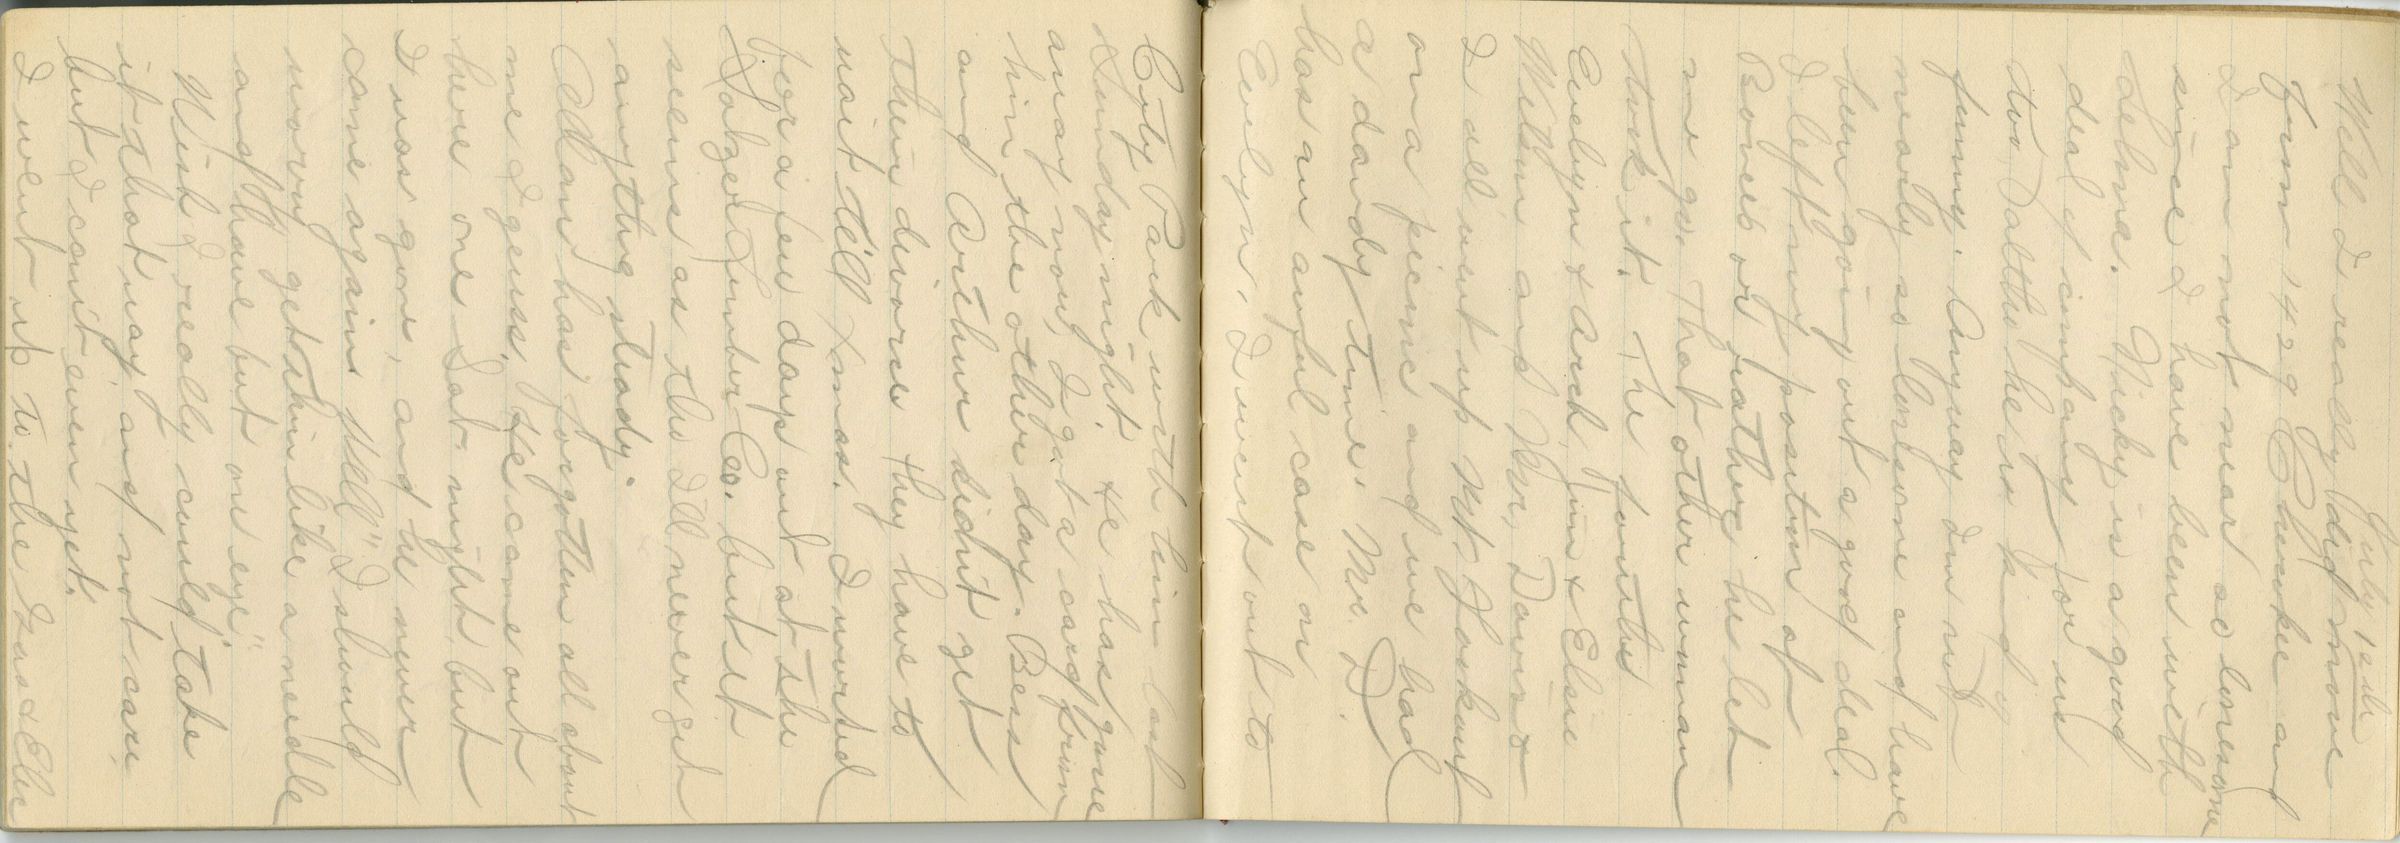 July 12th
Well I really did move
from 1429 Cherokee and
I am not near so lonesome
since I have been with
Velma. Nicky is a good
deal of company for us
too, altho he is kind of
funny. Anyway I'm not
nearly so lonesome and have
been going out a good deal.
I left my position at
or rather he let
me go. That other woman
took it. The fourth
Evelyn & Arch, Jim & Elsie
Welton and Mr. Davis &
I all went up Mt. Lookout
on a picnic and we had
a dandy time. Mr. D.
has an awful case on
Evelyn. I went out to
City Park with him last
Sunday night. He has gone
away now, I got a card from
him the other day. Bess
and Arthur didn't get
their divorce they have to
wait till Xmas. I worked
for a few days out at the
Lumber Co. but it
seems as tho I'll never get
anything steady.
Adam has forgotten all about
me I guess. He came out
here one Sat. night, but
I was gone, and he never
came again. Well "I should
worry get thin like a needle
and have but one eye"
Wish I really could take
it that way and not care,
but I can't even yet.
I went up to the Gas & Elec